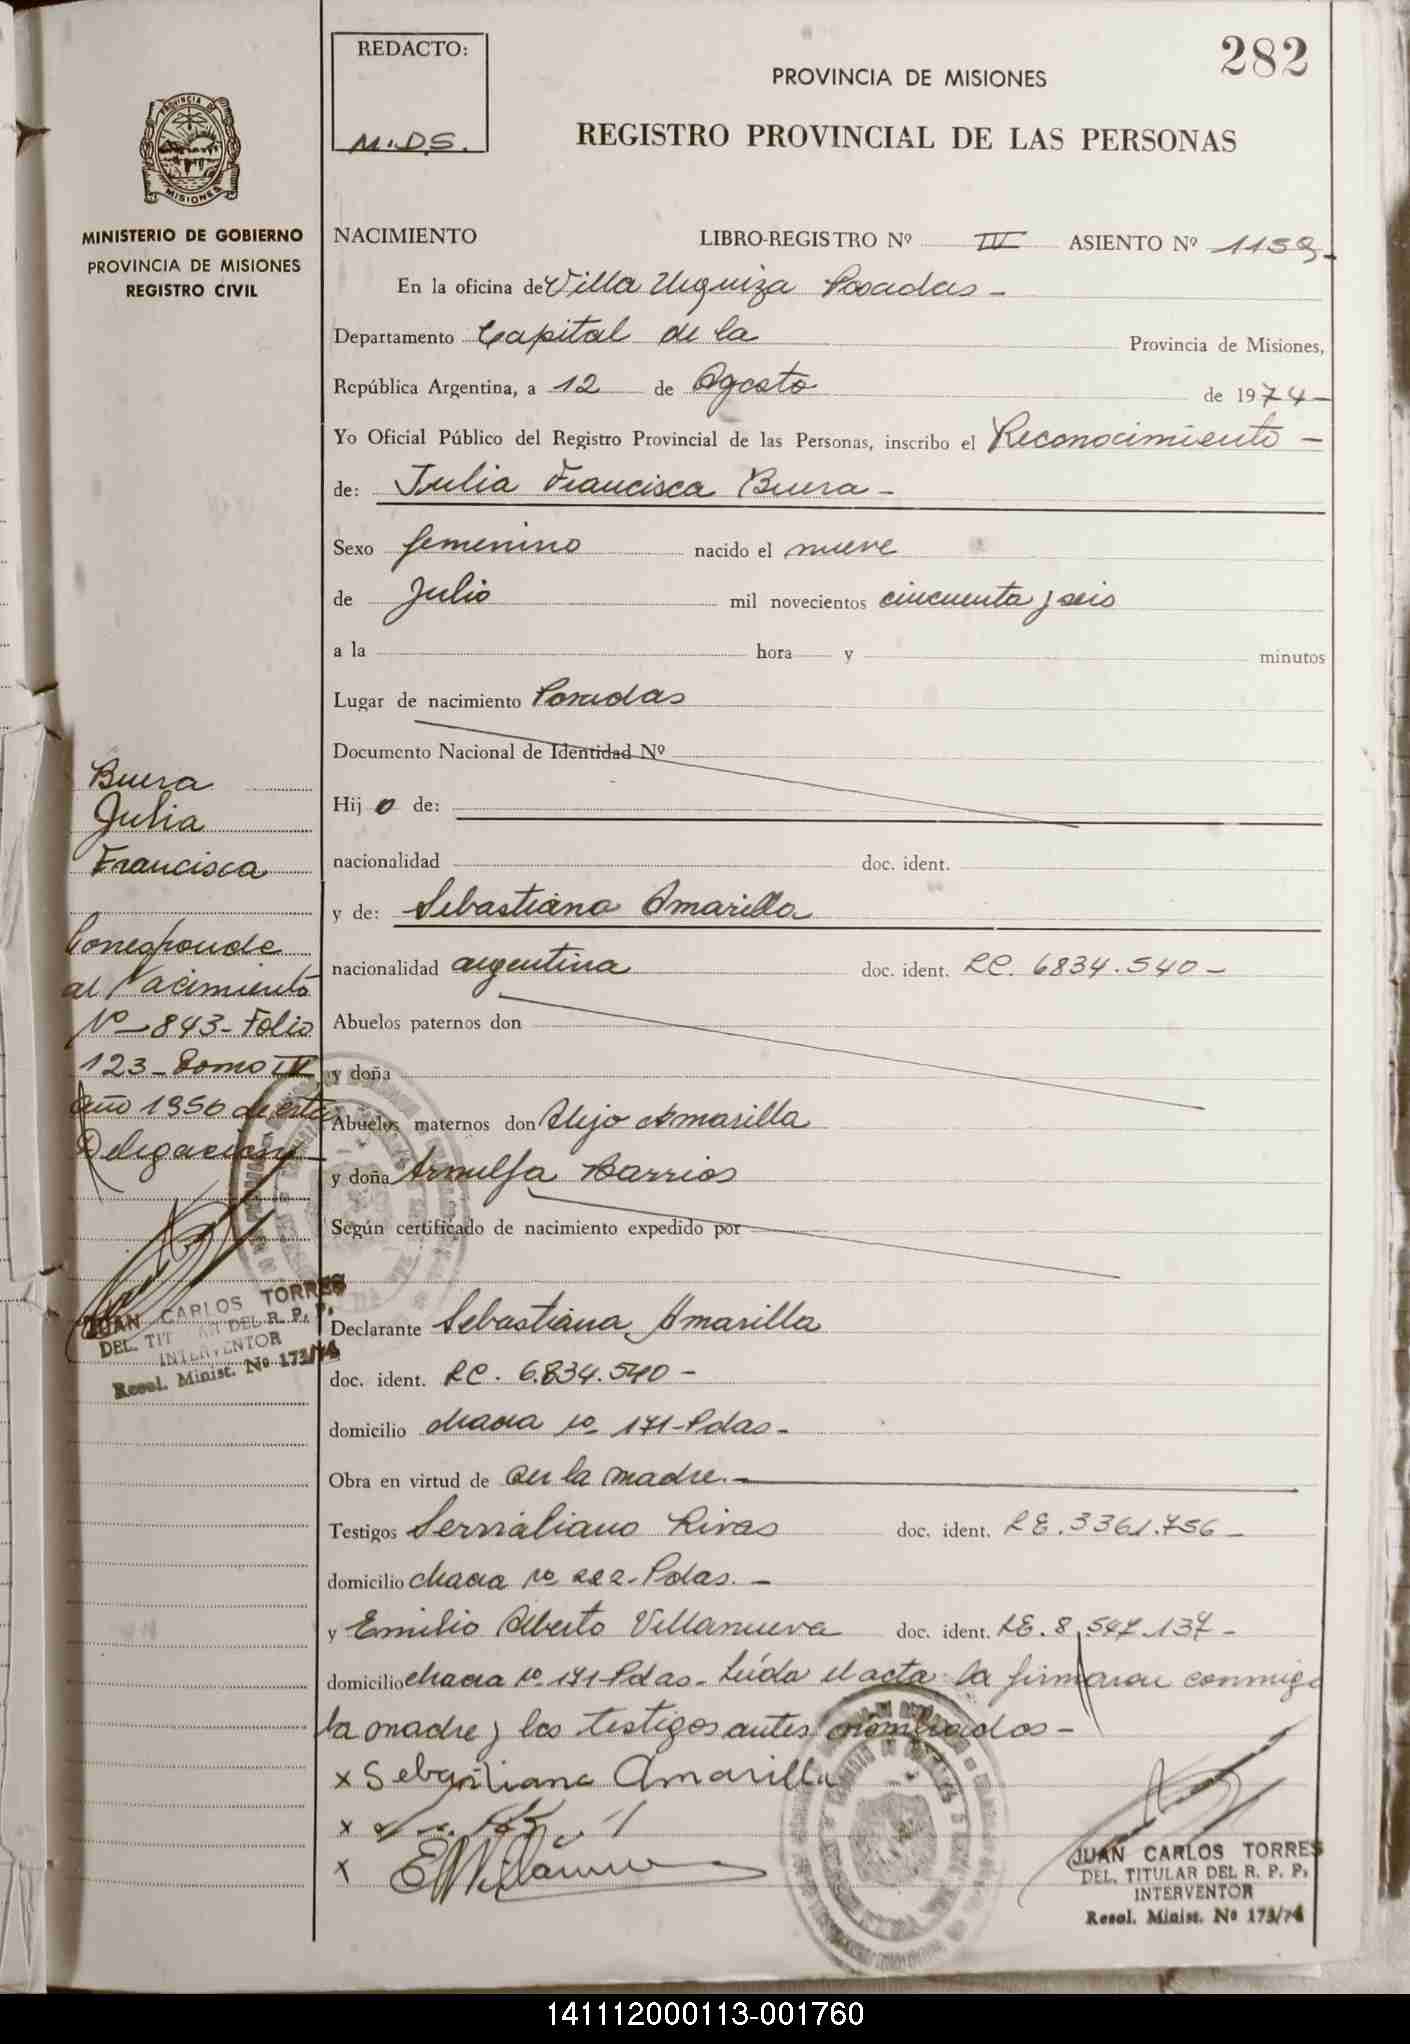 REDACTO:
M.D.S.
282
PROVINCIA DE MISIONES
REGISTRO PROVINCIAL DE LAS PERSONAS
PROVINCIA DE
MISIONES
MINISTERIO DE GOBIERNO
PROVINCIA DE MISIONES
REGISTRO CIVIL
NACIMIENTO LIBRO-REGISTRO Nº III ASIENTO Nº 1159-
En la oficina de Villa Urquiza Posadas-
Departamento Capital de la Provincia de Misiones,
República Argentina, a 12 de Agosto de 1974-
Yo Oficial Público del Registro Provincial de las Personas, inscribo el Reconocimiento -
de: Julia Francisca Buera-
Sexo femenino nacido el nueve
de Julio mil novecientos cincuenta y seis
a la hora y minutos
Lugar de nacimiento Posadas
Documento Nacional de Identidad Nº
Hij o de:
nacionalidad doc. ident.
y de: Sebastiana Amarilla
nacionalidad argentina doc. ident. LC. 6834.540-
Abuelos paternos don
y doña
Abuelos maternos don Alejo Amarilla
y doña Arnulfa Barrios
Según certificado de nacimiento expedido por
Declarante Sebastiana Amarilla
doc. ident. LC. 6.834.540-
domicilio chacra nº 171-Pdas-
Obra en virtud de ser la madre.-
Testigos Rivas doc. ident. LE. 3361.756-
domicilio chacra nº 222-Pdas.-
y Emilio Alberto Villanueva doc. ident. LE. 8.547.137-
domicilio chacra nº 171-Pdas- Leída el acta la firmaron conmigo
la madre y los testigos antes nombrados-
x Sebastiana Amarilla
x
x
Buera
Julia
Francisca
Corresponde
al Nacimiento
Nº-843-Folio
123-Tomo IV
Año 1956 de esta
Delegación-
JUAN CARLOS TORRES
DEL. TITULAR DEL R. P. P.
INTERVENTOR
Resol. Minist. Nº 173/74
JUAN CARLOS TORRES
DEL. TITULAR DEL R. P. P.
INTERVENTOR
Resol. Minist. Nº 173/74
141112000113-001760